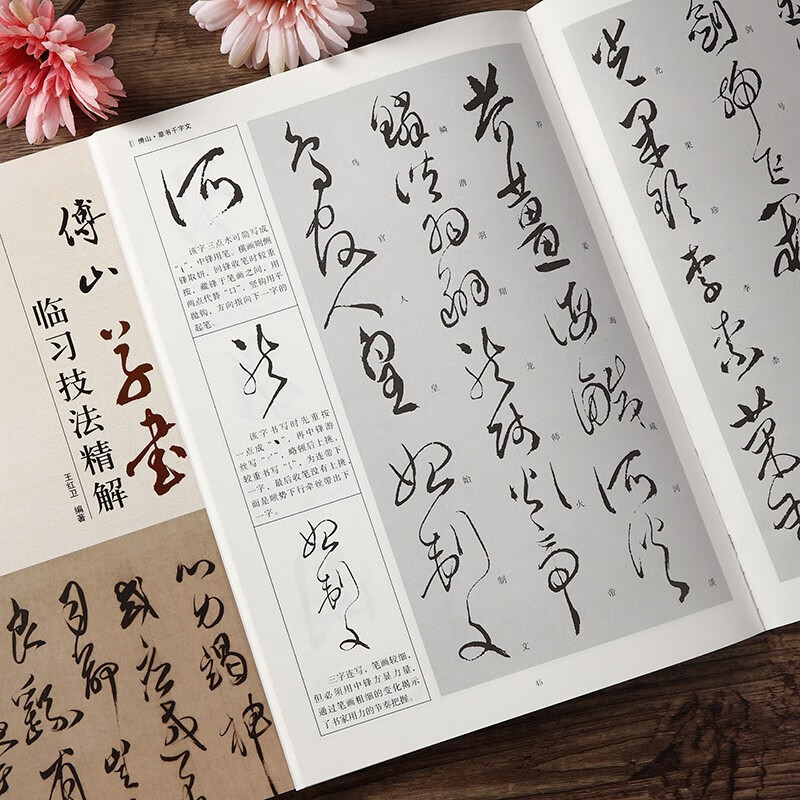 傅山草书
临习技法精解
王红卫 编著
傅山·草书千字文
河
该字三点水可简写成
“讠”,中锋用笔。横画则侧
锋取妍,回锋收笔时较重
按,藏锋于笔画之间,用
两点代替“口”,竖钩用平
抛钩,方向指向下一字的
起笔。
龙
该字书写时先重按
一点成“丶”,再中锋游
丝写“㇀”,略顿后上挑,
较重书写“”,为连带下
一字,最后收笔没有上挑,
而是顺势下行牵丝带出下
一字。
始制文
三字连写,笔画较细,
但必须用中锋方显力量,
通过笔画粗细的变化揭示
了书家用力的节奏把握。
剑号
光果珍李柰
芥姜海咸河淡
鳞潜羽翔龙师火帝
鸟官人皇始制文
45